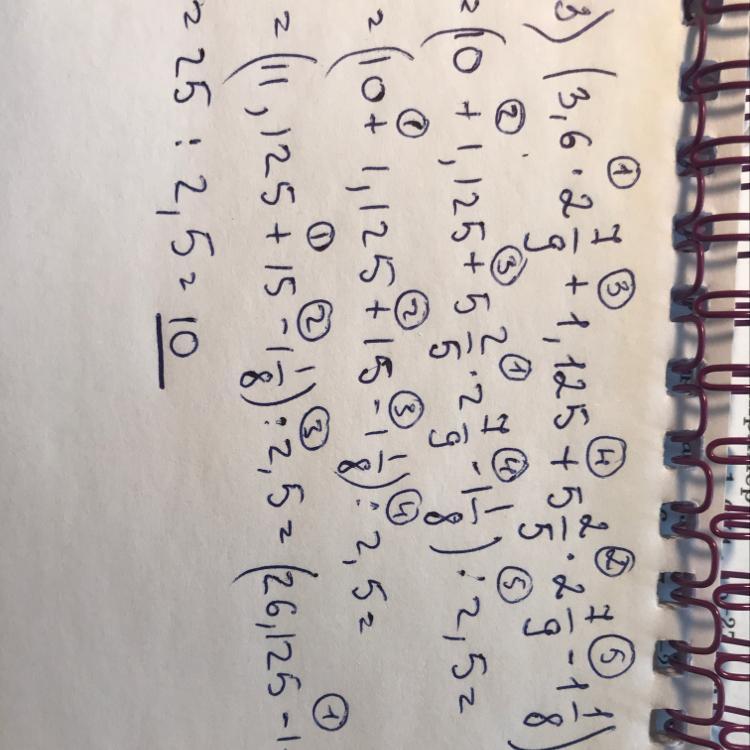 3) (3,6 · 2 7/9 + 1,125 + 5 2/5 · 2 7/9 - 1 1/8)
① ③ ④ ② ⑤
= (10 + 1,125 + 5 2/5 · 2 7/9 - 1 1/8) : 2,5 =
② ③ ① ④ ⑤
= (10 + 1,125 + 15 - 1 1/8) : 2,5 =
① ② ③ ④
= (11,125 + 15 - 1 1/8) : 2,5 = (26,125 - 1
① ② ③ ①
= 25 : 2,5 = 10